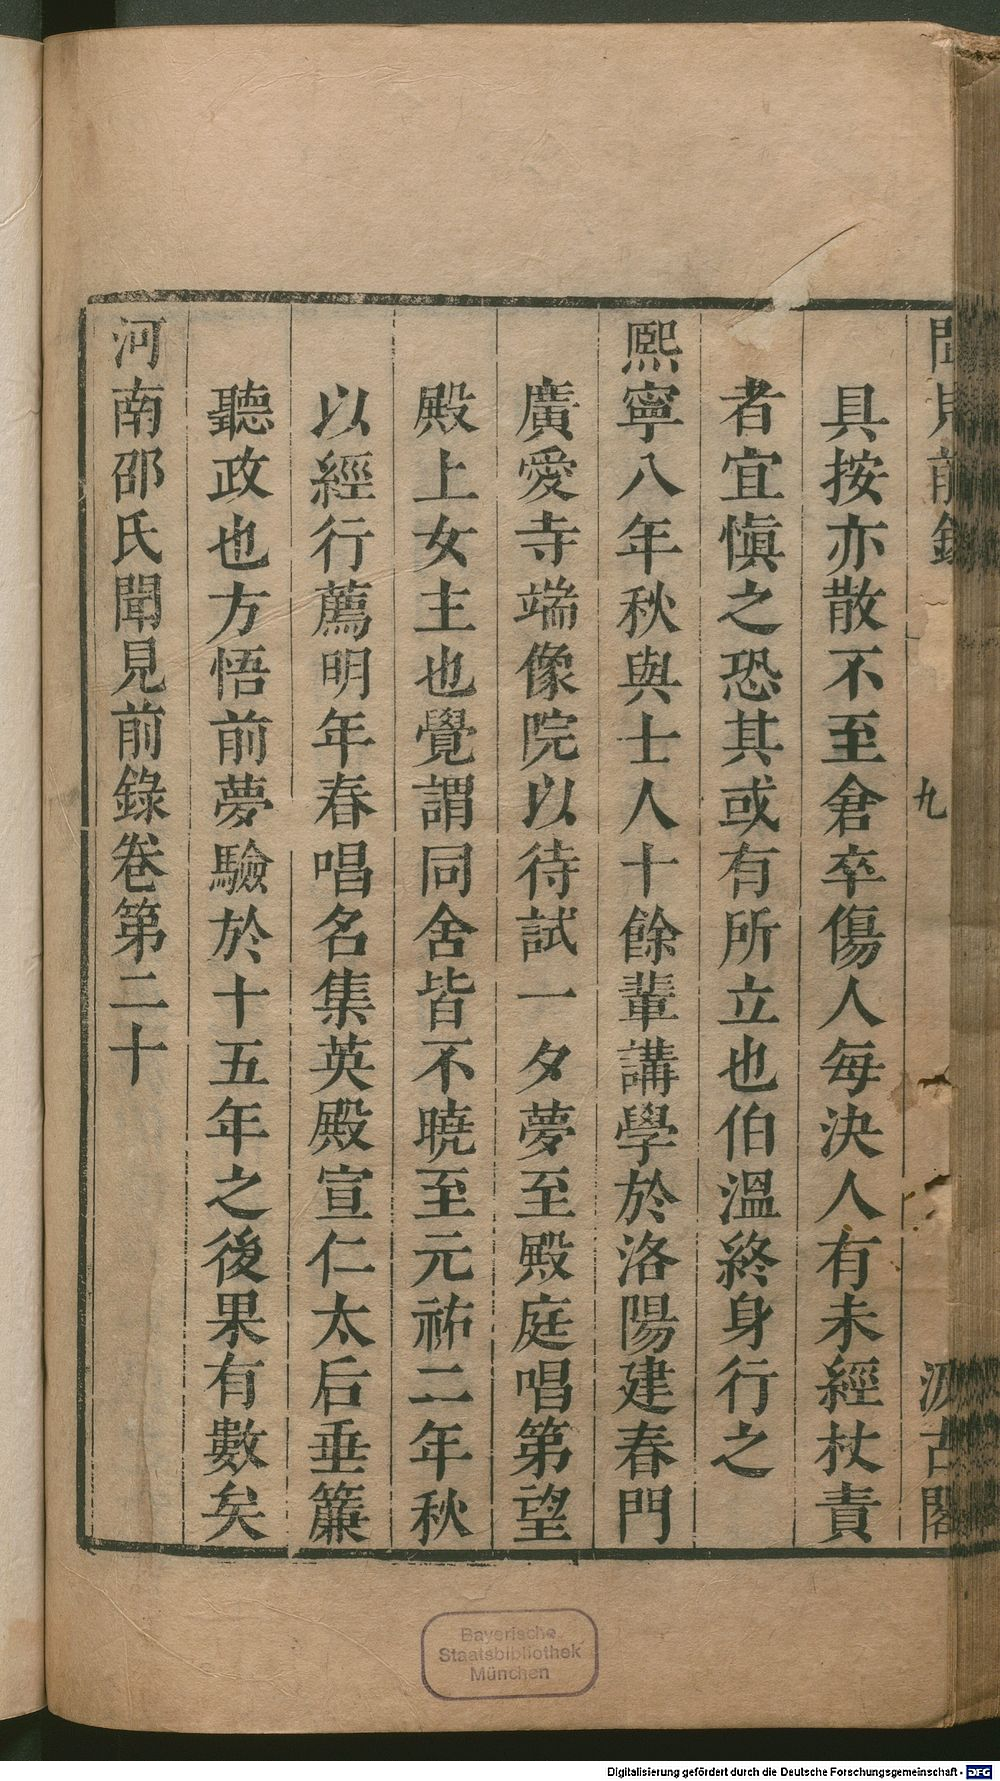 聞見前錄
九
汲古閣
具按亦散不至倉卒傷人每決人有未經杖責
者宜愼之恐其或有所立也伯溫終身行之
熙寧八年秋與士人十餘輩講學於洛陽建春門
廣愛寺端像院以待試一夕夢至殿庭唱第望
殿上女主也覺謂同舍皆不曉至元祐二年秋
以經行薦明年春唱名集英殿宣仁太后垂簾
聽政也方悟前夢驗於十五年之後果有數矣
河南邵氏聞見前錄卷第二十
Bayerische
Staatsbibliothek
München
Digitalisierung gefördert durch die Deutsche Forschungsgemeinschaft - DFG